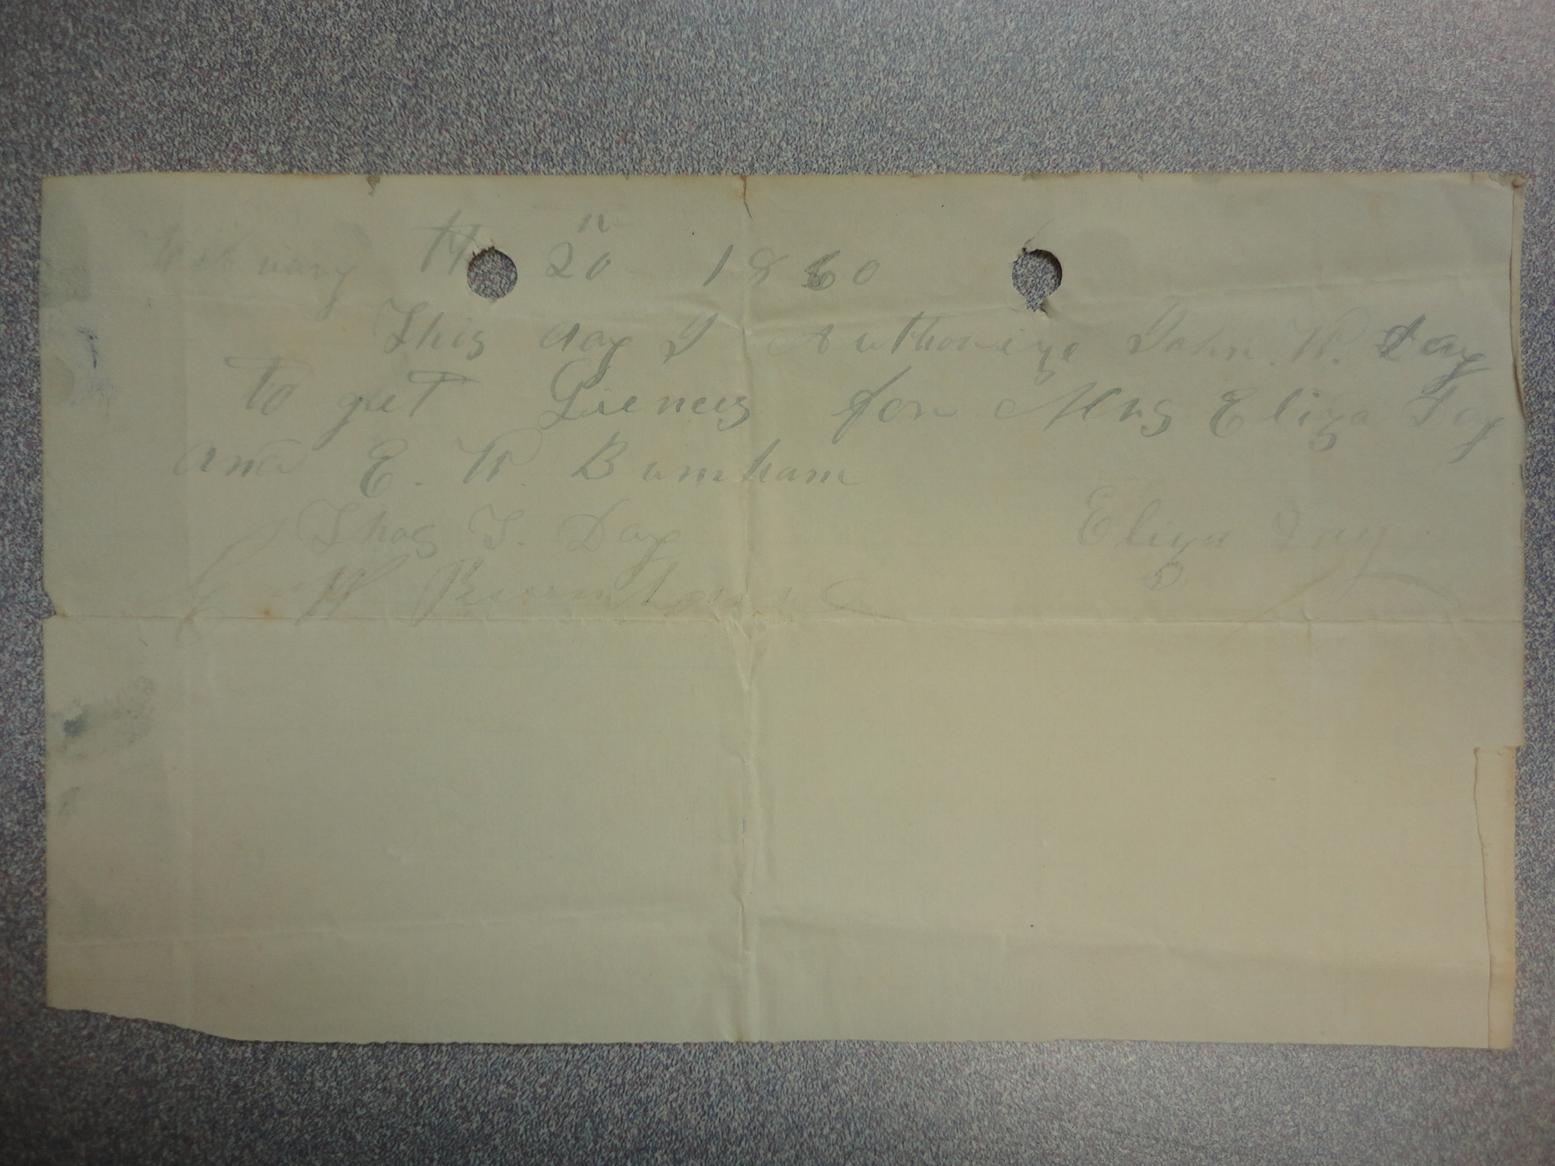 February the 20th 1860
This day I Authorize John W. Day
to get Liences for Mrs Eliza Day
and E. W. Burnham
Thos T. Day Eliza Day
W Burnham